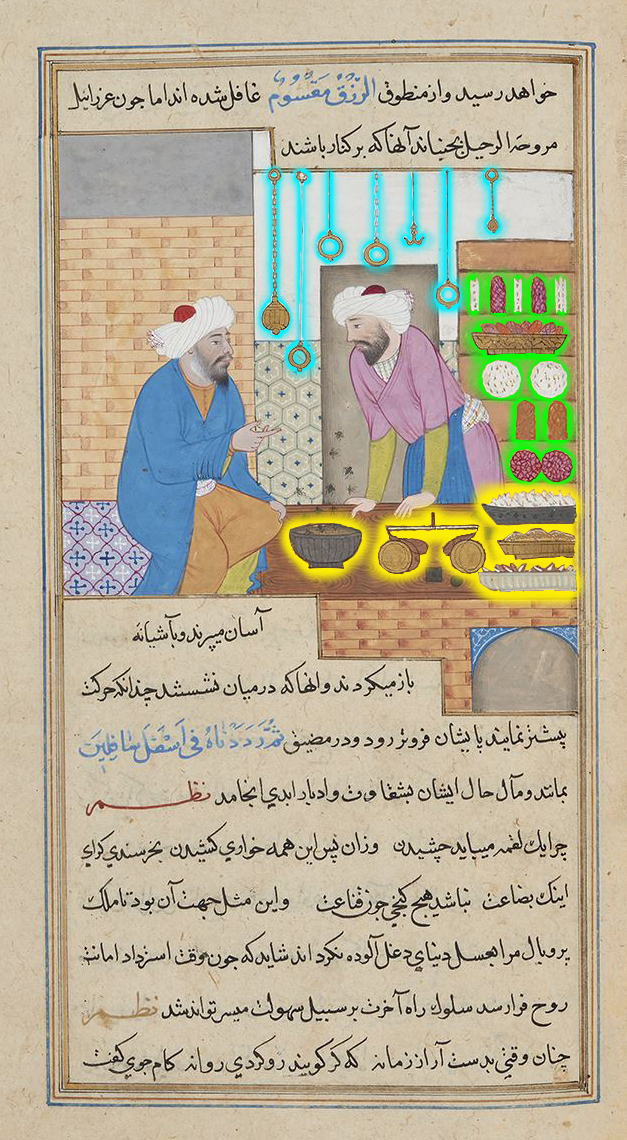 خواهد رسید و از منطوق الرِّزْقُ مَقْسُومٌ غافل شده اند اما چون عزرایل
مروحهٔ الرحیل بجنباند آنها که بر کنار باشند
آسان میپرند و بآشیانه
باز میکردند و انها که در میان نشستند چندانکه حرکت
پیشتر نمایند پا یشان فروتر رود و در مضیق ثُمَّ رَدَدْنَاهُ فِی اَسْفَلَ سَافِلِینَ
بمانند و مآل حال ایشان بشقاوت و ادبار ابدی انجامد نظم
چرا یك لقمه میباید چشیدن وزان پس این همه خواری کشیدن بخرسندی کرای
اینك بضاعت نباشد هیچ کنجی چون قناعت و این مثل جهت آن بود تا ملك
پر و بال مرا بعسل دنیای دغل آلوده نکرداند شاید که چون وقت استرداد امانت
روح فرا رسد سلوك راه آخرت بر سبیل سهولت میسر تواند شد نظم
چنان وقتی بدست آر از زمانه که کر کویند رو کردی روانه کام جوی کفت